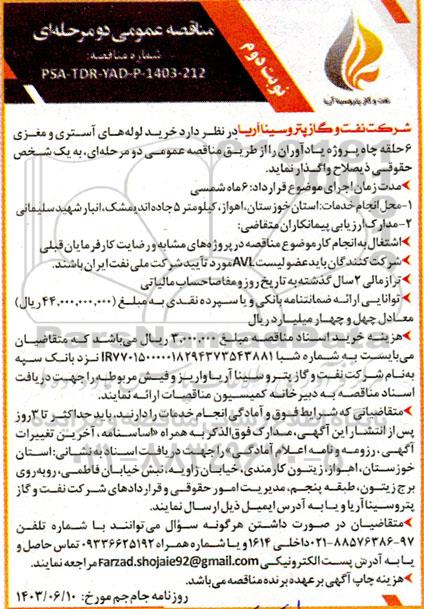 مناقصه عمومی دو مرحله‌ای
شماره مناقصه:
PSA-TDR-YAD-P-1403-212
نوبت دوم
نفت و گاز پتروسینا آریا
شرکت نفت و گاز پتروسینا آریا در نظر دارد خرید لوله‌های آستری و مغزی
۶ حلقه چاه پروژه یادآوران را از طریق مناقصه عمومی دو مرحله‌ای، به یک شخص
حقوقی ذیصلاح واگذار نماید.
♦مدت زمان اجرای موضوع قرارداد: ۶ ماه شمسی
۱-محل انجام خدمات: استان خوزستان، اهواز، کیلومتر ۵ جاده اندیمشک، انبار شهید سلیمانی
۲-مدارک ارزیابی پیمانکاران متقاضی:
♦اشتغال به انجام کار موضوع مناقصه در پروژه‌های مشابه و رضایت کارفرمایان قبلی
♦شرکت کنندگان باید عضو لیست AVL مورد تأیید شرکت ملی نفت ایران باشند.
♦تراز مالی ۲ سال گذشته به تاریخ روز و مفاصاحساب مالیاتی
♦توانایی ارائه ضمانتنامه بانکی و یا سپرده نقدی به مبلغ (۴۴,۰۰۰,۰۰۰,۰۰۰ ریال)
معادل چهل و چهار میلیارد ریال
♦هزینه خرید اسناد مناقصه مبلغ ۳,۰۰۰,۰۰۰ ریال می‌باشد که متقاضیان
می‌بایست به شماره شبا IR۷۷۰۱۵۰۰۰۰۰۱۸۲۹۴۳۷۳۵۴۳۸۸۱ نزد بانک سپه
به‌نام شرکت نفت و گاز پتروسینا آریا واریز و فیش مربوطه را جهت دریافت
اسناد مناقصه به دبیرخانه کمیسیون مناقصات ارائه نمایند.
♦متقاضیانی که شرایط فوق و آمادگی انجام خدمات را دارند، باید حداکثر تا ۳ روز
پس از انتشار این آگهی، مدارک فوق‌الذکر به همراه «اساسنامه، آخرین تغییرات
آگهی، رزومه و نامه اعلام آمادگی» را جهت دریافت اسناد به نشانی: استان
خوزستان، اهواز، زیتون کارمندی، خیابان زاویه، نبش خیابان فاطمی، روبه‌روی
برج زیتون، طبقه پنجم، مدیریت امور حقوقی و قراردادهای شرکت نفت و گاز
پتروسینا آریا و یا به آدرس ایمیل ذیل ارسال نمایند.
♦متقاضیان در صورت داشتن هرگونه سؤال می‌توانند با شماره تلفن
۹۷-۸۸۵۷۶۳۸۶-۰۲۱ داخلی ۱۶۱۴ و یا شماره همراه ۰۹۳۳۶۶۲۵۱۹۲ تماس حاصل و
یا به آدرس پست الکترونیکی Farzad.shojaie92@gmail.com مراجعه نمایند.
♦هزینه چاپ آگهی بر عهده برنده مناقصه می‌باشد.
روزنامه جام جم مورخ: ۱۴۰۳/۰۶/۱۰